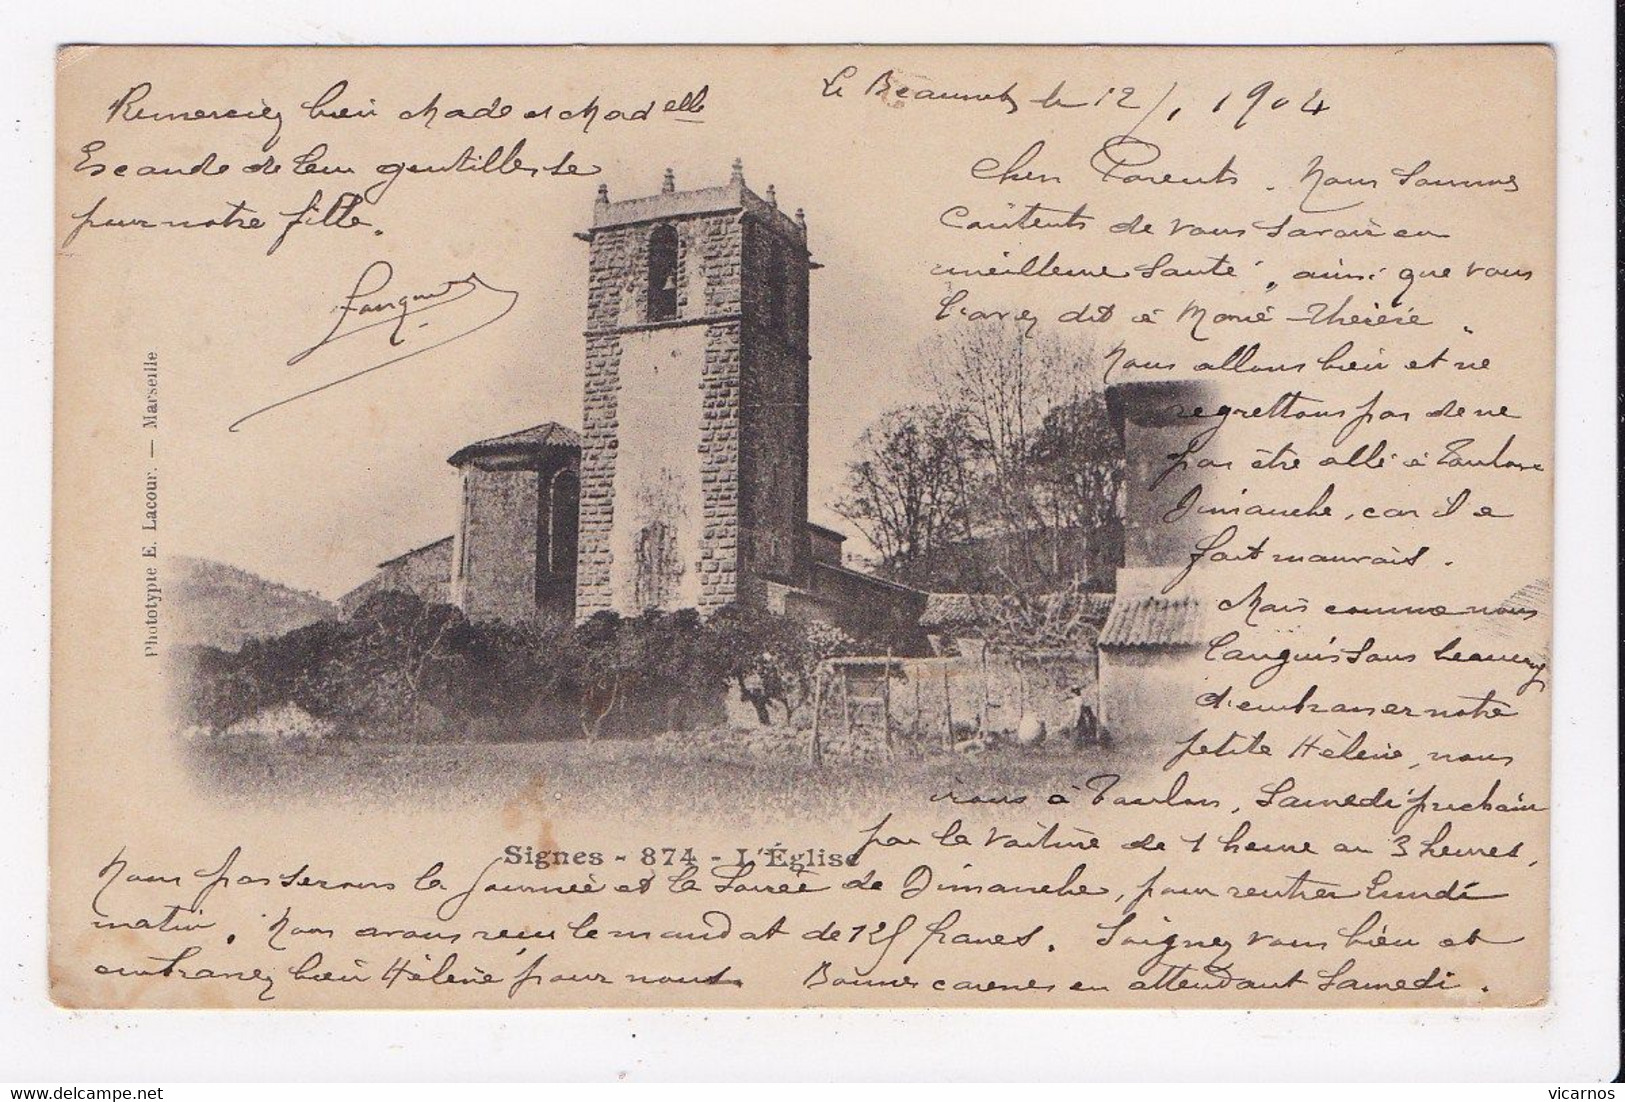 Le Beausset le 12/1 1904
Chers Parents. Nous sommes
contents de vous savoir en
meilleure santé, ainsi que vous
l'avez dit à Marie-Thérèse.
Nous allons bien et ne
regrettons pas de ne
pas être allé à Toulon
Dimanche, car il a
fait mauvais.
Mais comme nous
languissons beaucoup
d'embrasser notre
petite Hélène, nous
irons à Toulon, Samedi prochain
par la voiture de 1 heure ou 3 heures.
Nous passerons la journée et la soirée de Dimanche, pour rentrer Lundi
matin. Nous avons reçu le mandat de 125 francs. Soignez vous bien et
embrassez bien Hélène pour nous. Bonnes caresses en attendant Samedi.
Remerciez bien Made et Madelle
Escande de leur gentillesse
pour notre fille.
Phototypie E. Lacour. — Marseille
Signes - 874 - L'Église
vicarnos